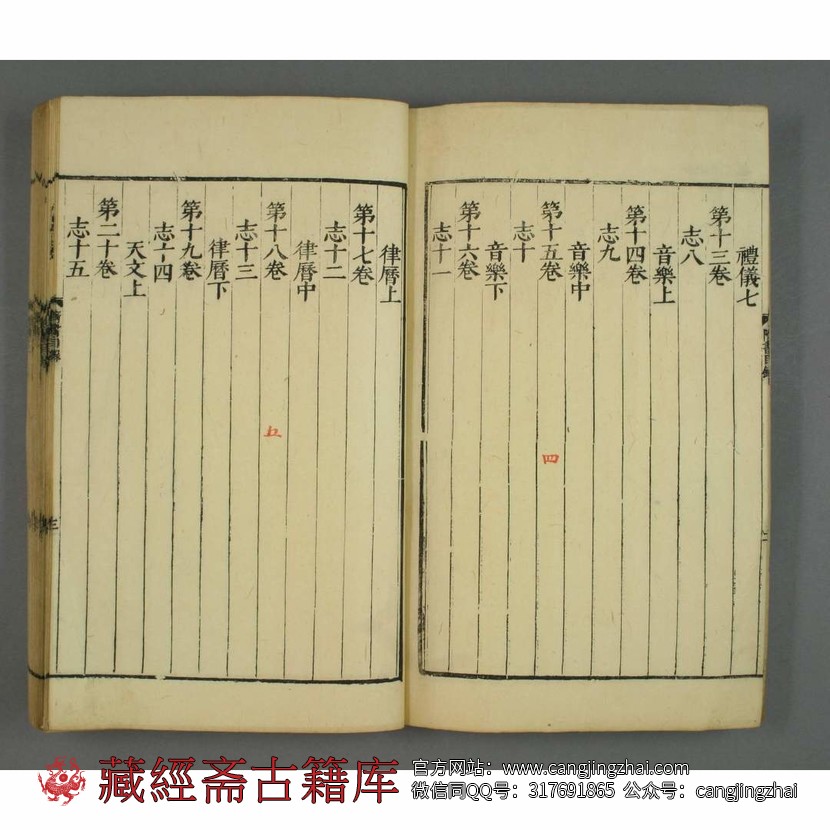 禮儀七
第十三卷
志八
音樂上
第十四卷
志九
音樂中
第十五卷
志十
音樂下
第十六卷
志十一
四
律曆上
第十七卷
志十二
律曆中
第十八卷
志十三
律曆下
第十九卷
志十四
天文上
第二十卷
志十五
五
藏經斋古籍库
官方网站：www.cangjingzhai.com
微信同QQ号：317691865 公众号：cangjingzhai